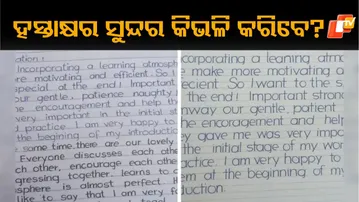 ହସ୍ତାକ୍ଷର ସୁନ୍ଦର କିଭଳି କରିବେ?
TV
ation :
Incorporating a learning atmosp
re motivating and efficient. So I
special at the end! Important
our gentle, patience naughty
he encouragement and help the
very important. In the initial s
d practice. I am very happy to
the begining of my introductio
some time. there are our lovely
Everyone discusses each othe
ch other, encourage each othe
gressing together, learns to
sphere is almost perfect.
like to say that I am very
corporating a leaning atmo
make more motivating a
ecient. So I want to the s
the end! Important stros
nway our gentle, patient
he encouragement and help
y gave me was very impo
the initial stage of my wor
actice. I am very happy to
em at the beginning of my
duction.